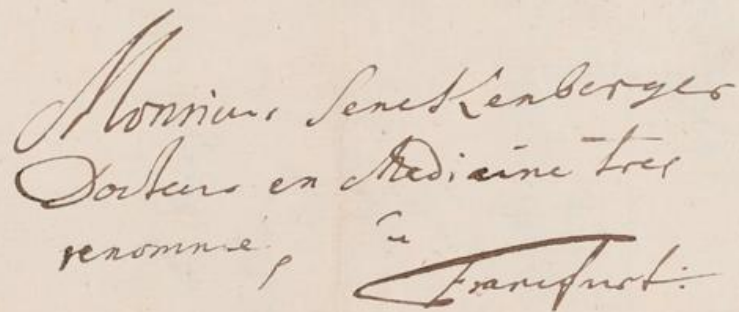 Monsieur Senckenberger
Docteur en Medicine tres
renommé, à
Francfurt: